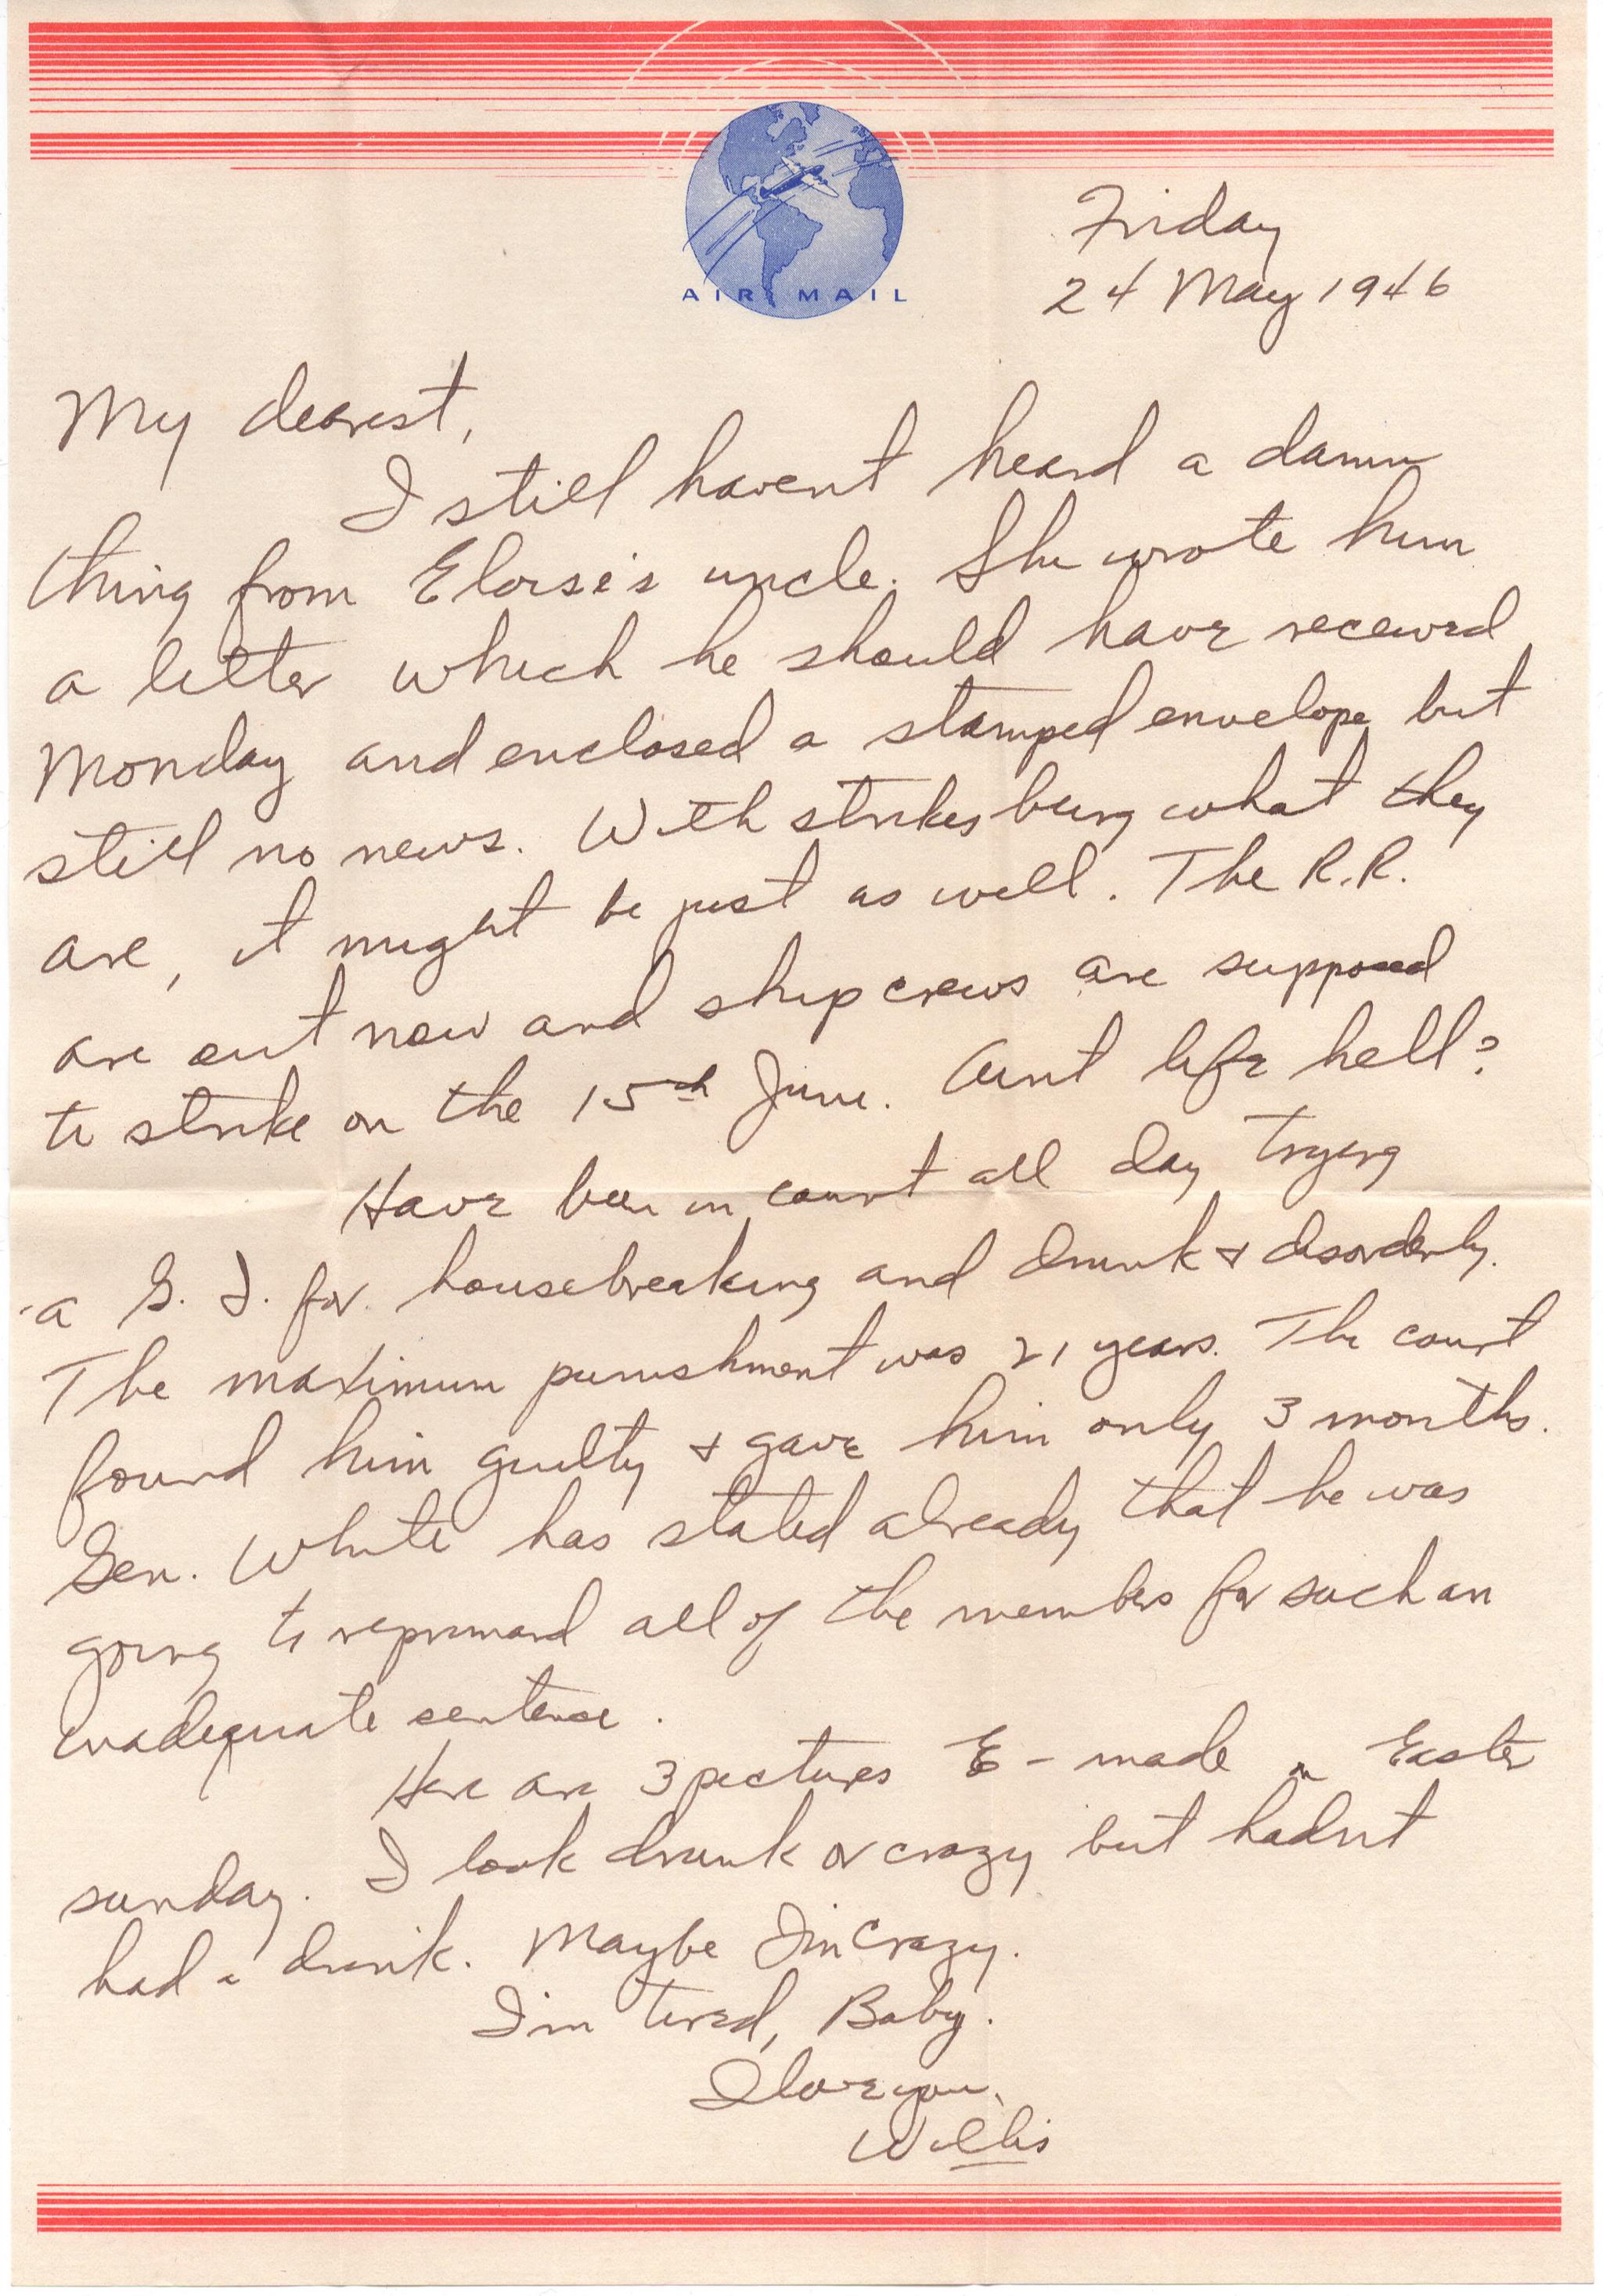 AIR MAIL
Friday
24 May 1946
My dearest,
I still havent heard a damn
thing from Eloise's uncle. She wrote him
a letter which he should have received
Monday and enclosed a stamped envelope but
still no news. With strikes being what they
are, it might be just as well. The R.R.
are out now and ship crews are supposed
to strike on the 15th June. Aint life hell?
Have been in court all day trying
a G. I. for housebreaking and drunk & disorderly.
The maximum punishment was 21 years. The court
found him guilty & gave him only 3 months.
Gen. White has stated already that he was
going to reprimand all of the members for such an
inadequate sentence.
Here are 3 pictures E - made on Easter
sunday. I look drunk or crazy but hadnt
had a drink. Maybe I'm crazy.
I'm tired, Baby.
I love you,
Willis